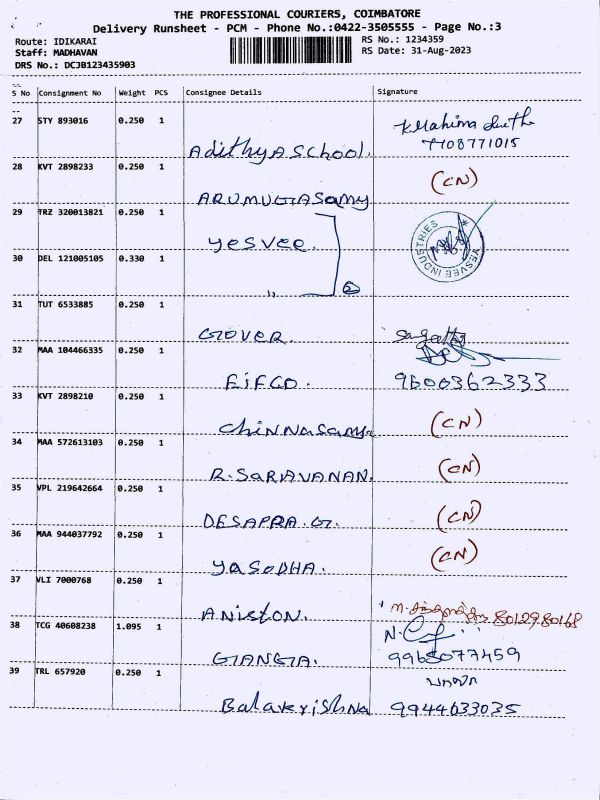 THE PROFESSIONAL COURIERS, COIMBATORE
Delivery Runsheet - PCM - Phone No.:0422-3505555 - Page No.:3
Route: IDIKARAI
Staff: MADHAVAN
DRS No.: DCJB123435903
RS No.: 1234359
RS Date: 31-Aug-2023
S No Consignment No Weight PCS Consignee Details Signature
27 STY 893016 0.250 1
7708771015
AdithyA School.
28 KVT 2898233 0.250 1
(CN)
ARUMUGASamy
29 TRZ 320013821 0.250 1
yesvee.
YESVEE INDUSTRIES
30 DEL 121005105 0.330 1
,, 2
31 TUT 6533885 0.250 1
GOVER.
32 MAA 104466335 0.250 1
EIFGO. 9600362333
33 KVT 2898210 0.250 1
ChiNNaSamy (CN)
34 MAA 572613103 0.250 1
R.SARAVANAN. (CN)
35 VPL 219642664 0.250 1
DESAPRA.G. (CN)
36 MAA 944037792 0.250 1
yaSODHA. (CN)
37 VLI 7000768 0.250 1
ANISTON. 8012980168
38 TCG 40608238 1.095 1
GANGA. 9965077459
39 TRL 657920 0.250 1
பாலா
Balakrishna 9944633035